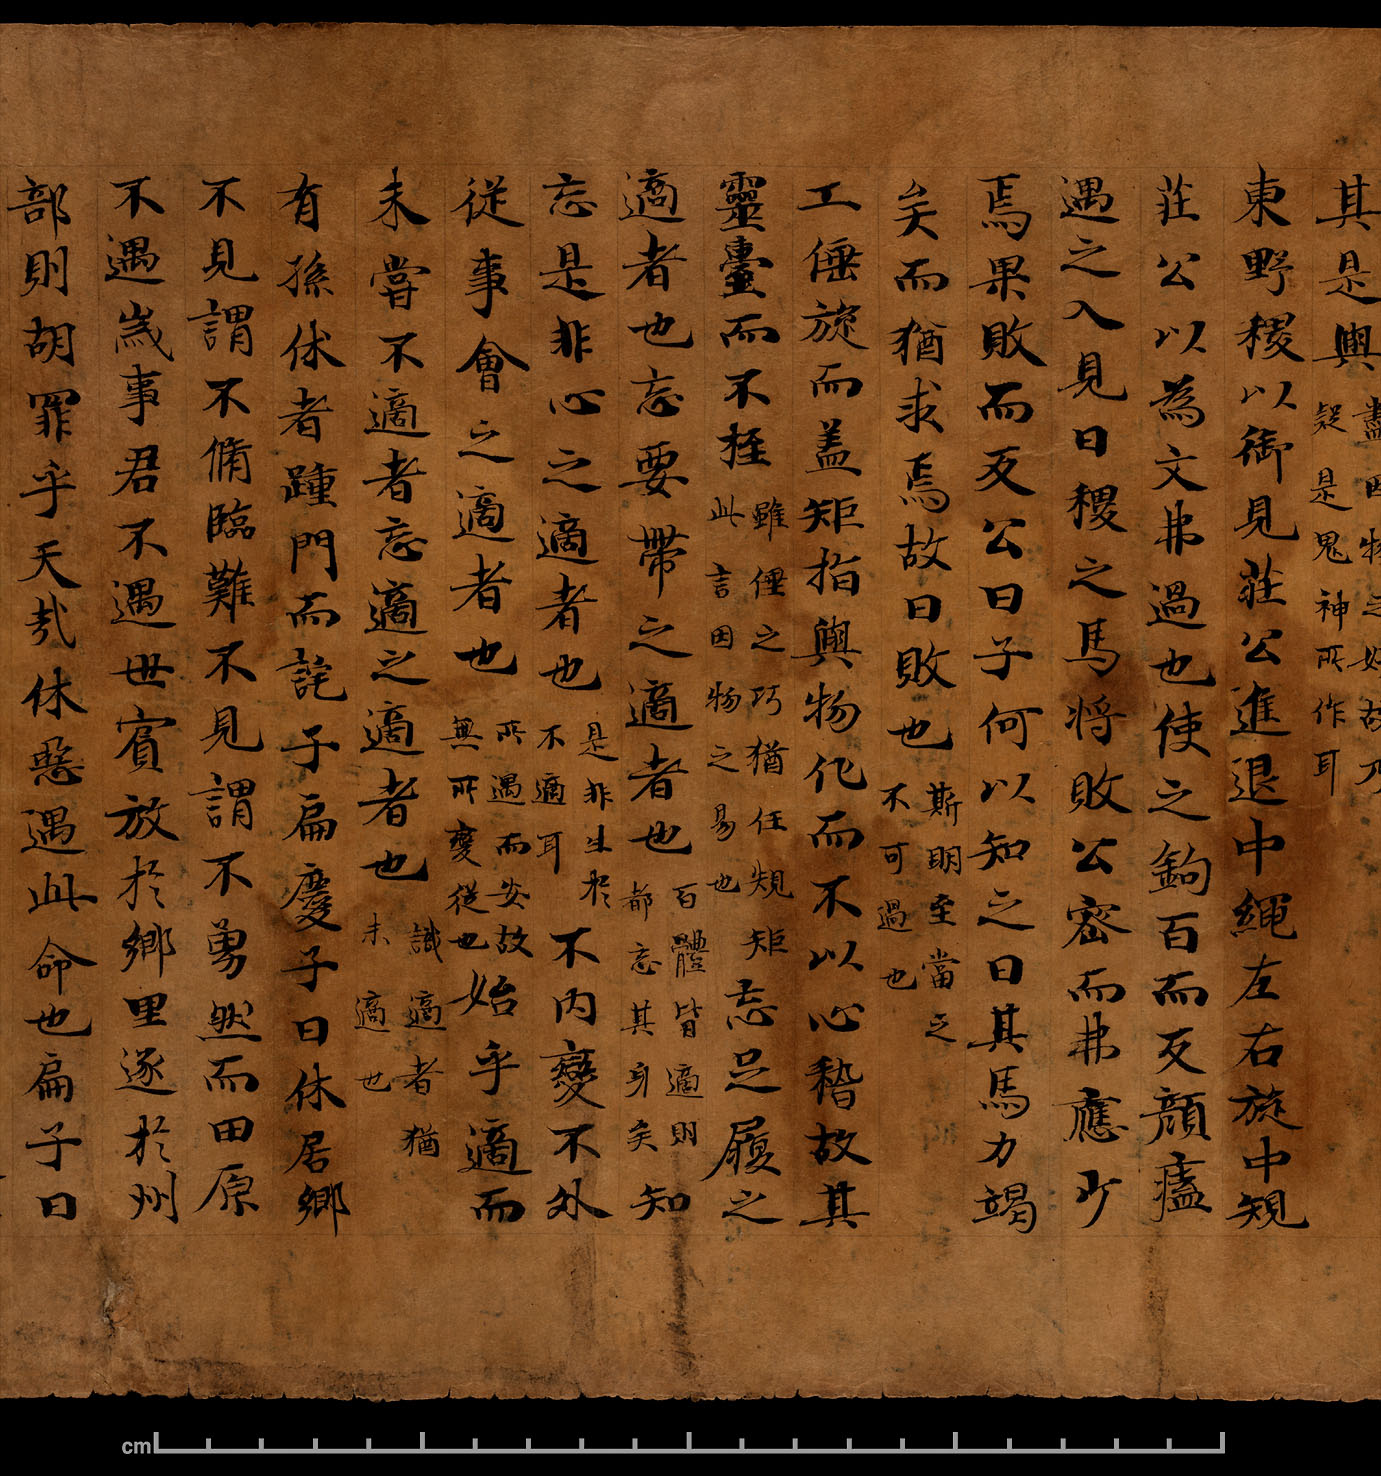 其是與盡因物之妙故乃疑是鬼神所作耳
東野稷以御見莊公進退中繩左右旋中規
莊公以為文弗過也使之鉤百而反顏盍
遇之入見曰稷之馬將敗公密而弗應少
焉果敗而反公曰子何以知之曰其馬力竭
矣而猶求焉故曰敗也斯明至當之不可過也
工倕旋而蓋矩指與物化而不以心稽故其
靈臺而不桎雖倕之巧猶任規矩此言因物之易也忘足履之
適者也忘要帶之適者也百體皆適則都忘其身矣知
忘是非心之適者也是非生於不適耳不内變不外
從事會之適者也所遇而安故無所變從也始乎適而
未嘗不適者忘適之適者也識適者猶未適也
有孫休者踵門而詫子扁慶子曰休居鄉
不見謂不脩臨難不見謂不勇然而田原
不遇歲事君不遇世賓放於鄉里逐於州
部則胡罪乎天哉休惡遇此命也扁子曰